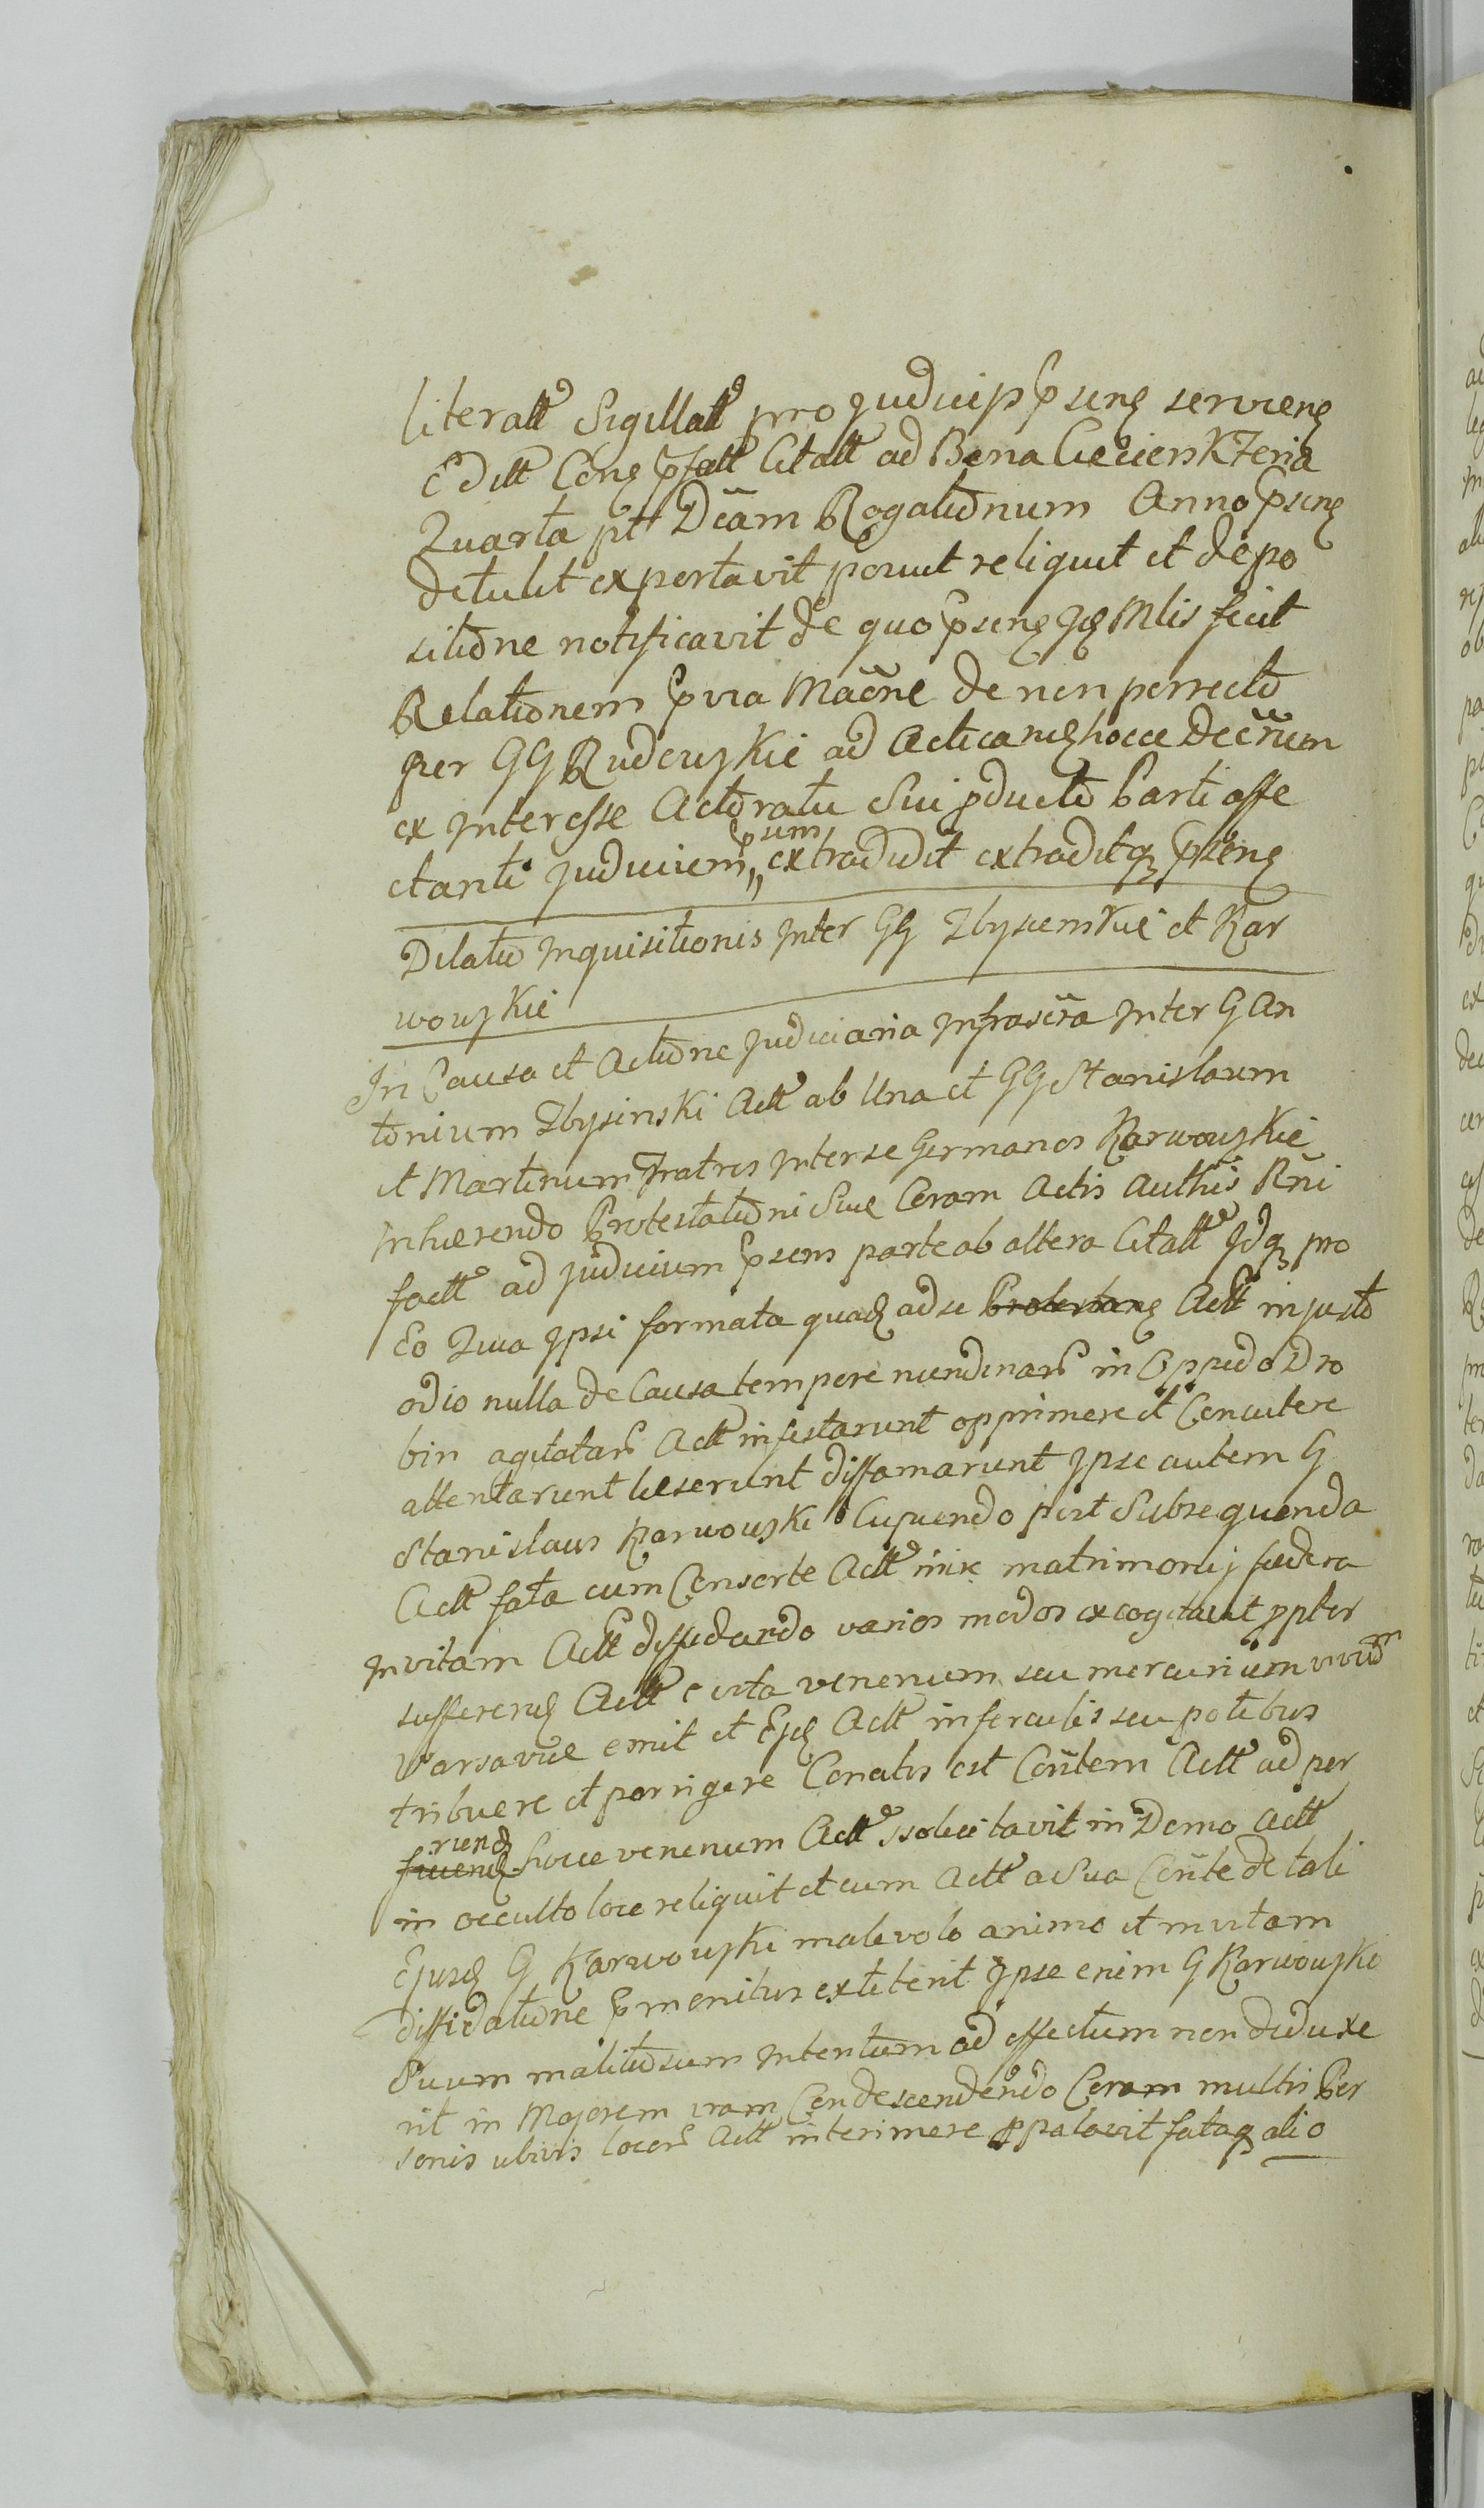 literatt Sigillatt pro Judicijs psens serviens
Editt Cons psatt Citatt ad Bona Ciecierski Feria
Quarta ptt Dnicam Rogationum Anno psens
detulit exportavit posuit reliquit et depo
sitione notificavit de quo psens Js Mlis fecit
Relationem pvia Maone de non porrecto
per GG Rudowskie ad Acticans hocce Decrum
ex Interesse Actoratu Sui pducto Parti affe
ctanti Judicium psum extradidit extraditq psens
Dilatio Inquisitionis Inter GG Zbysienskie et Kar
wowskie
In Causa et Actione Judiciaria Infrascra Inter G An
tonium Zbysinski Act ab Una et GG Stanislaum
et Martinum Fratres Inter se Germanos Karwowskie
Inhaerendo Protestationi Suae Coram Actis Authis Rni
factt ad Judicium psens parte ab altera Citatt Idq pro
Eo Quia Ipsi formata quas ad se Protestans Actt injusto
odio nulla de Causa tempore nundinar in Oppido Dro
bin agitatar Actt infestarunt opprimere et Concutere
attentarunt laeserunt diffamarunt Ipse autem G
Stanislaus Karwowski Cupiendo post Subsequenda
Actt fata cum Consorte Actt inire matrimonij foedera
In vitam Actt diffidando varios modos excogitavit ppter
sufferens Actt e vita venenum seu mercurium vivum
Varsaviae emit et Ejs Actt in ferculis seu potibus
tribuere et porrigere Conatus est Contem Actt ad per
ficiend riend hocce venenum Actt sollicitavit in Domo Actt
in occulto loco reliquit et cum Actt a Sua Conte de tali
Ejusd G Karwowski malevolo animo et in vitam
diffidatione pmonitus extiterit Ipse enim G Karwowski
Suum malitiosum Intentum ad effectum non deduxe
rit in Majorem iram Condescendendo Coram multis Per
sonis ubivis locor Actt interimere ppalavit fataq alio